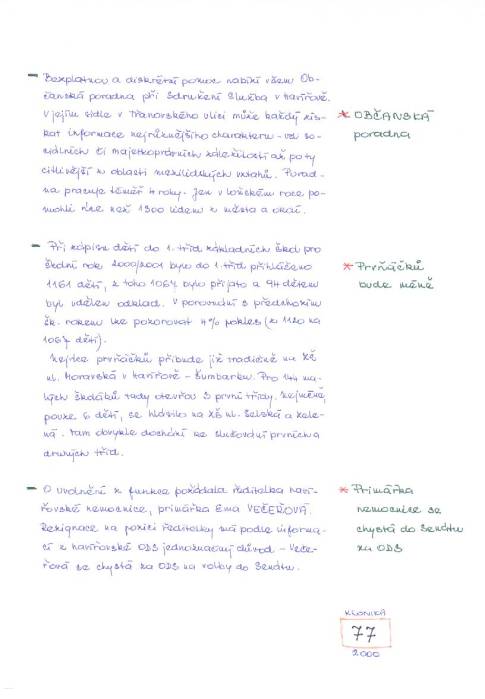 - Bezplatnou a diskrétní pomoc nabízí všem Ob-
čanská poradna při Sdružení Služba v Havířově.
V jejím sídle v Třanovského ulici může každý zís-
kat informace nejrůznějšího charakteru - od so-
ciálních či majetkoprávních záležitostí až po ty
citlivější z oblasti mezilidských vztahů. Porad-
na pracuje téměř 4 roky. Jen v loňském roce po-
mohli více než 1300 lidem z města a okolí.
* OBČANSKÁ
poradna
- Při zápisu dětí do 1. tříd základních škol pro
školní rok 2000/2001 bylo do 1. tříd přihlášeno
1161 dětí, z toho 1067 bylo přijato a 94 dětem
byl udělen odklad. V porovnání s předchozím
šk. rokem lze pozorovat 4% pokles (z 1120 na
1067 dětí).
Nejvíce prvňáčků přibude již tradičně na ZŠ
ul. Moravská v Havířově - Šumbarku. Pro 144 ma-
lých školáků tady otevřou 5 první třídy. Nejméně,
pouze 6 dětí, se hlásilo na ZŠ ul. Selská a Zele-
ná. Tam obvykle dochází ke slučování prvních a
druhých tříd.
* Prvňáčků
bude méně
- O uvolnění z funkce požádala ředitelka haví-
řovské nemocnice, primářka Ema VEČEŘOVÁ.
Rezignace na pozici ředitelky má podle informa-
cí z havířovské ODS jednoznačný důvod - Veče-
řová se chystá za ODS na volby do Senátu.
* Primářka
nemocnice se
chystá do Senátu
za ODS
KRONIKA
77
2000